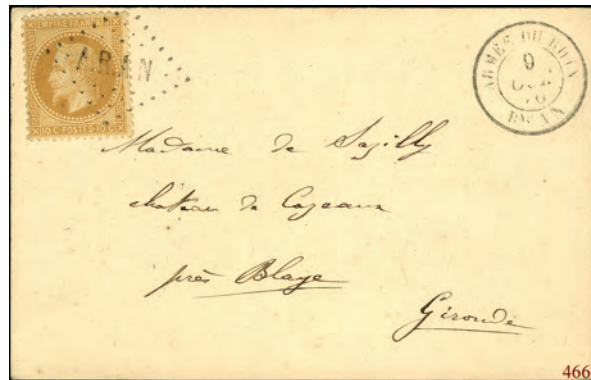 EMPIRE FRANÇAIS
10 C. POSTES 10 C.
ARMÉE DU RHIN
9
70
Madame de Sazilly
château de Cazeaux
près Blaye
Gironde
466